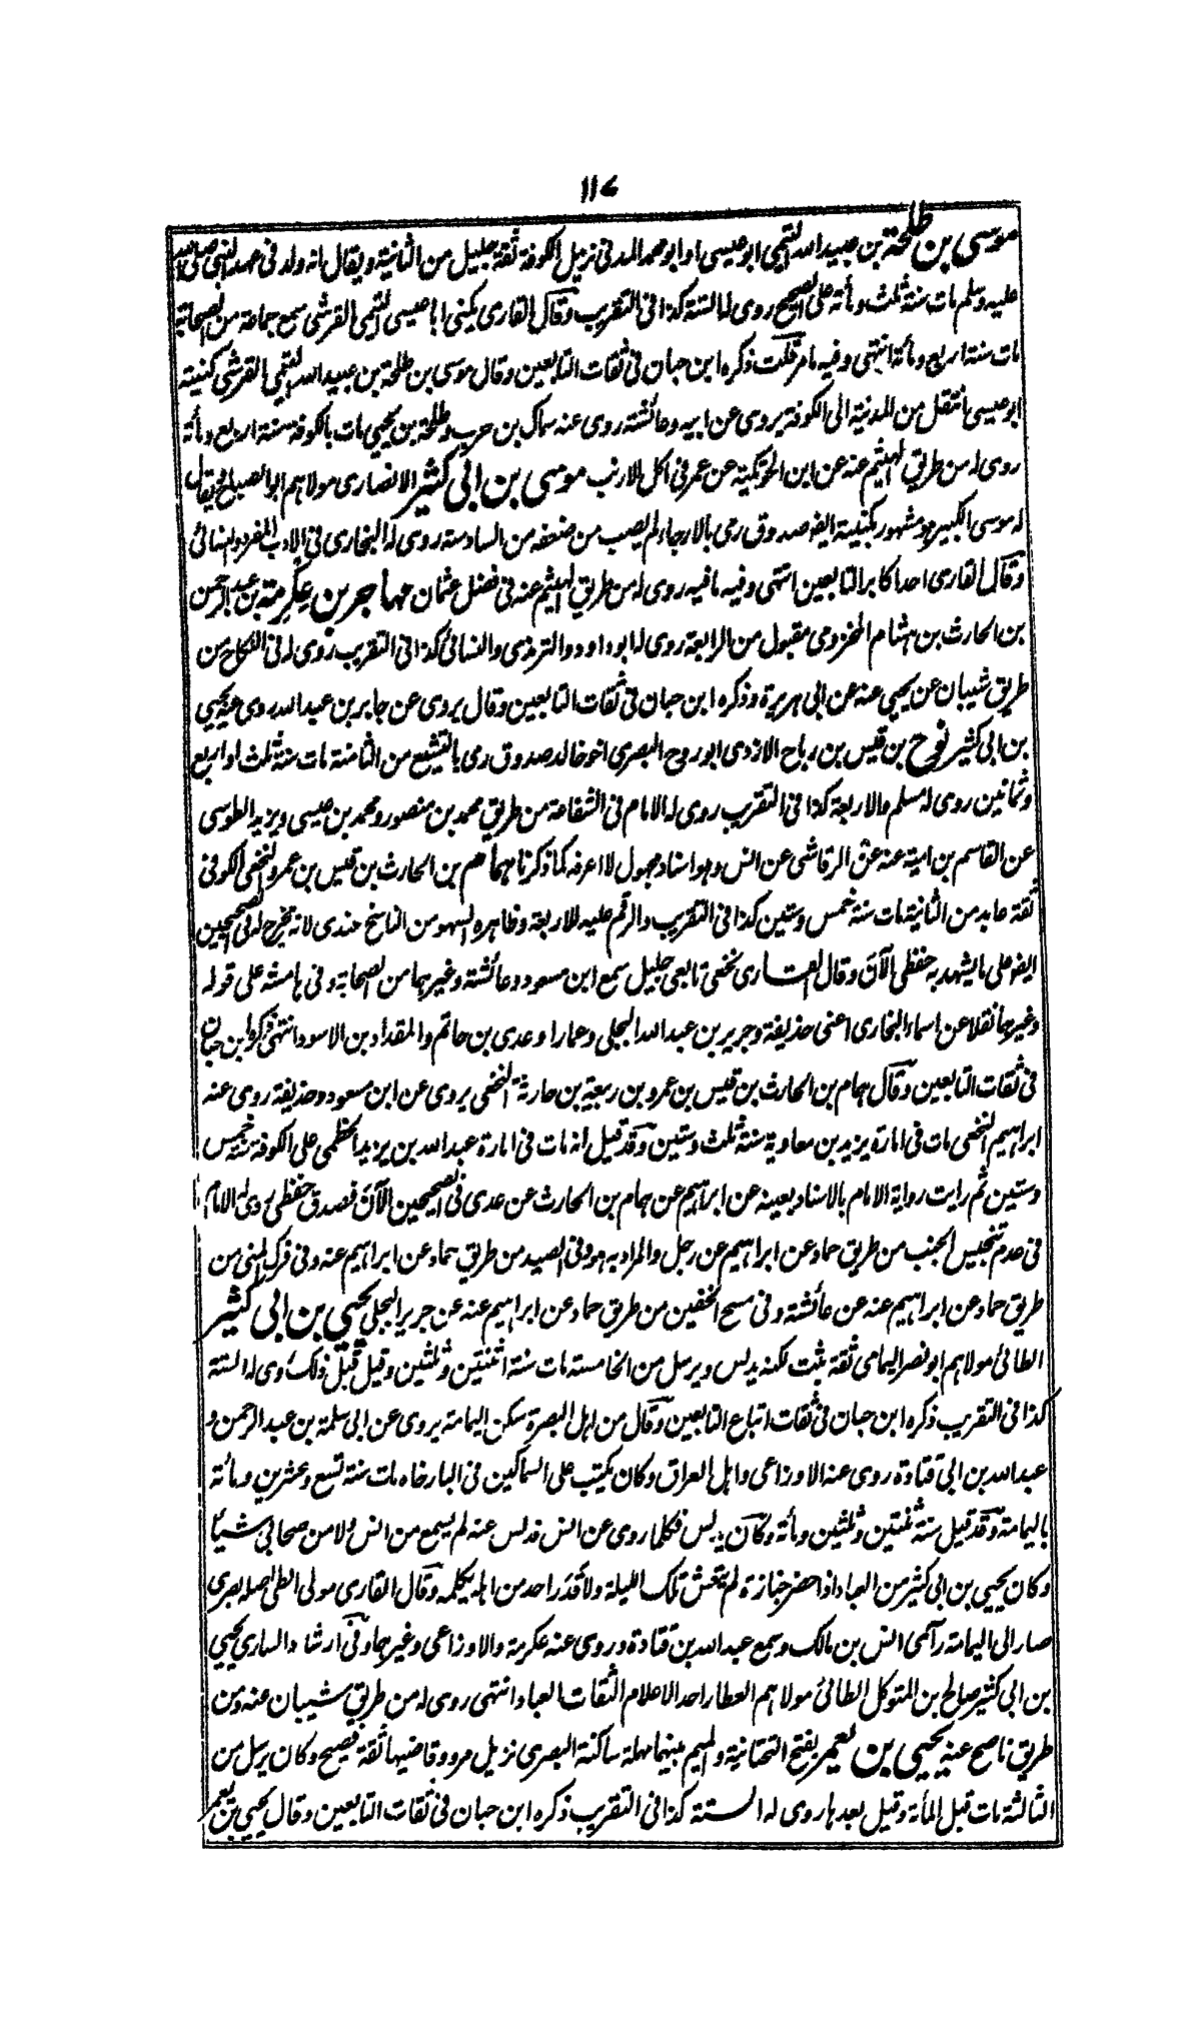 ١١٧
موسى بن طلحة بن عبيد الله التيمي ابو عيسى او ابو محمد المدني نزيل الكوفة ثقة جليل من الثانية ويقال انه ولد في عهد النبي صلى الله
عليه وسلم مات سنة ثلث ومأة على الصحيح روى له الستة كذا في التقريب وقال القاري يكنى ابا عيسى التيمي القرشي سمع جماعة من الصحابة
مات سنة اربع ومأة انتهى وفيه ما مر قلت ذكره ابن حبان في ثقات التابعين وقال موسى بن طلحة بن عبيد الله التيمي القرشي كنيته
ابو عيسى انتقل من المدينة الى الكوفة يروى عن ابيه وعائشة روى عنه سماك بن حرب وطلحة بن يحيى مات بالكوفة سنة اربع ومأة
روى له من طريق الهيثم عنه عن ابن الحوتكية عن عمر في اكل الارنب موسى بن ابي كثير الانصاري مولاهم ابو الصباح يقال
له موسى الكبير وهو مشهور بكنيته ايضا صدوق رمي بالارجاء لم يصب من ضعفه من السادسة روى له البخاري في الادب المفرد والنسائي
وقال القاري احد اكابر التابعين انتهى وفيه ما فيه روى له من طريق الهيثم عنه في فضل عثمان مهاجر بن عكرمة بن عبد الرحمن
بن الحارث بن هشام المخزومي مقبول من الرابعة روى له ابو داود والترمذي والنسائي كذا في التقريب روى له في النكاح من
طريق شيبان عن يحيى عنه عن ابي هريرة وذكره ابن حبان في ثقات التابعين وقال يروى عن جابر بن عبد الله روى عنه يحيى
بن ابي كثير نوح بن قيس بن رباح الازدي ابو روح البصري اخو خالد صدوق رمي بالتشيع من الثامنة مات سنة ثلث او اربع
وثمانين روى له مسلم والاربعة كذا في التقريب روى له الامام في الشفاعة من طريق محمد بن منصور ومحمد بن عيسى ويزيد الطوسي
عن القاسم بن امية عنه عن الرقاشي عن انس وهو اسناد مجهول لا اعرفه كما ذكرنا همام بن الحارث بن قيس بن عمرو النخعي الكوفي
ثقة عابد من الثانية مات سنة خمس وستين كذا في التقريب والرقم عليه للاربعة وظاهره السهو من الناسخ عندي لانه يخرج له في الصحيحين
ايضا على ما يشهد به حفظي الآن وقال القاري نخعي تابعي جليل سمع ابن مسعود وعائشة وغيرهما من الصحابة وفي هامشه على قوله
وغيرهما نقلا عن اسماء البخاري اعني حذيفة وجرير بن عبد الله البجلي وعمارا وعدي بن حاتم والمقداد بن الاسود انتهى ذكره ابن حبان
في ثقات التابعين وقال همام بن الحارث بن قيس بن عمرو بن ربيعة بن حارثة النخعي يروى عن ابن مسعود وحذيفة روى عنه
ابراهيم النخعي مات في امارة يزيد بن معاوية سنة ثلث وستين وقد قيل انه مات في امارة عبد الله بن يزيد الخطمي على الكوفة سنة خمس
وستين ثم رايت رواية الامام بالاسناد بعينه عن ابراهيم عن همام بن الحارث عن عدي في الصحيحين الآن فصدق حفظي روى له الامام
في عدم تنجيس الجنب من طريق حماد عن ابراهيم عن رجل والمراد به هو وفي الصيد من طريق حماد عن ابراهيم عنه وفي فرك المني من
طريق حماد عن ابراهيم عنه عن عائشة وفي مسح الخفين من طريق حماد عن ابراهيم عنه عن جرير البجلي يحيى بن ابي كثير
الطائي مولاهم ابو نصر اليمامي ثقة ثبت لكنه يدلس ويرسل من الخامسة مات سنة اثنتين وثلثين وقيل قبل ذلك روى له الستة
كذا في التقريب ذكره ابن حبان في ثقات اتباع التابعين وقال من اهل البصرة سكن اليمامة يروى عن ابي سلمة بن عبد الرحمن و
عبد الله بن ابي قتادة روى عنه الاوزاعي واهل العراق وكان يكتب على السماكين في البارخاه مات سنة تسع وعشرين ومأة
باليمامة وقد قيل سنة ثنتين وثلثين ومأة وكان يدلس فكلما روى عن انس فدلس عنه لم يسمع من انس ولا من صحابي شيئا
وكان يحيى بن ابي كثير من العباد اذا حضر جنازة لم يتعش تلك الليلة ولا قدر احد من اهله يكلمه وقال القاري مولى الطي اصله بصري
صار الى اليمامة رآى انس بن مالك وسمع عبد الله بن قتادة وروى عنه عكرمة والاوزاعي وغيرهما وفي ارشاد الساري يحيى
بن ابي كثير صالح بن المتوكل الطائي مولاهم العطار احد الاعلام الثقات العباد انتهى روى له من طريق شيبان عنه ومن
طريق ناصح عنه يحيى بن يعمر بفتح التحتانية والميم بينهما مهملة ساكنة البصري نزيل مرو وقاضيها ثقة فصيح وكان يرسل من
الثالثة مات قبل المأة وقيل بعدها روى له الستة كذا في التقريب ذكره ابن حبان في ثقات التابعين وقال يحيى بن يعمر